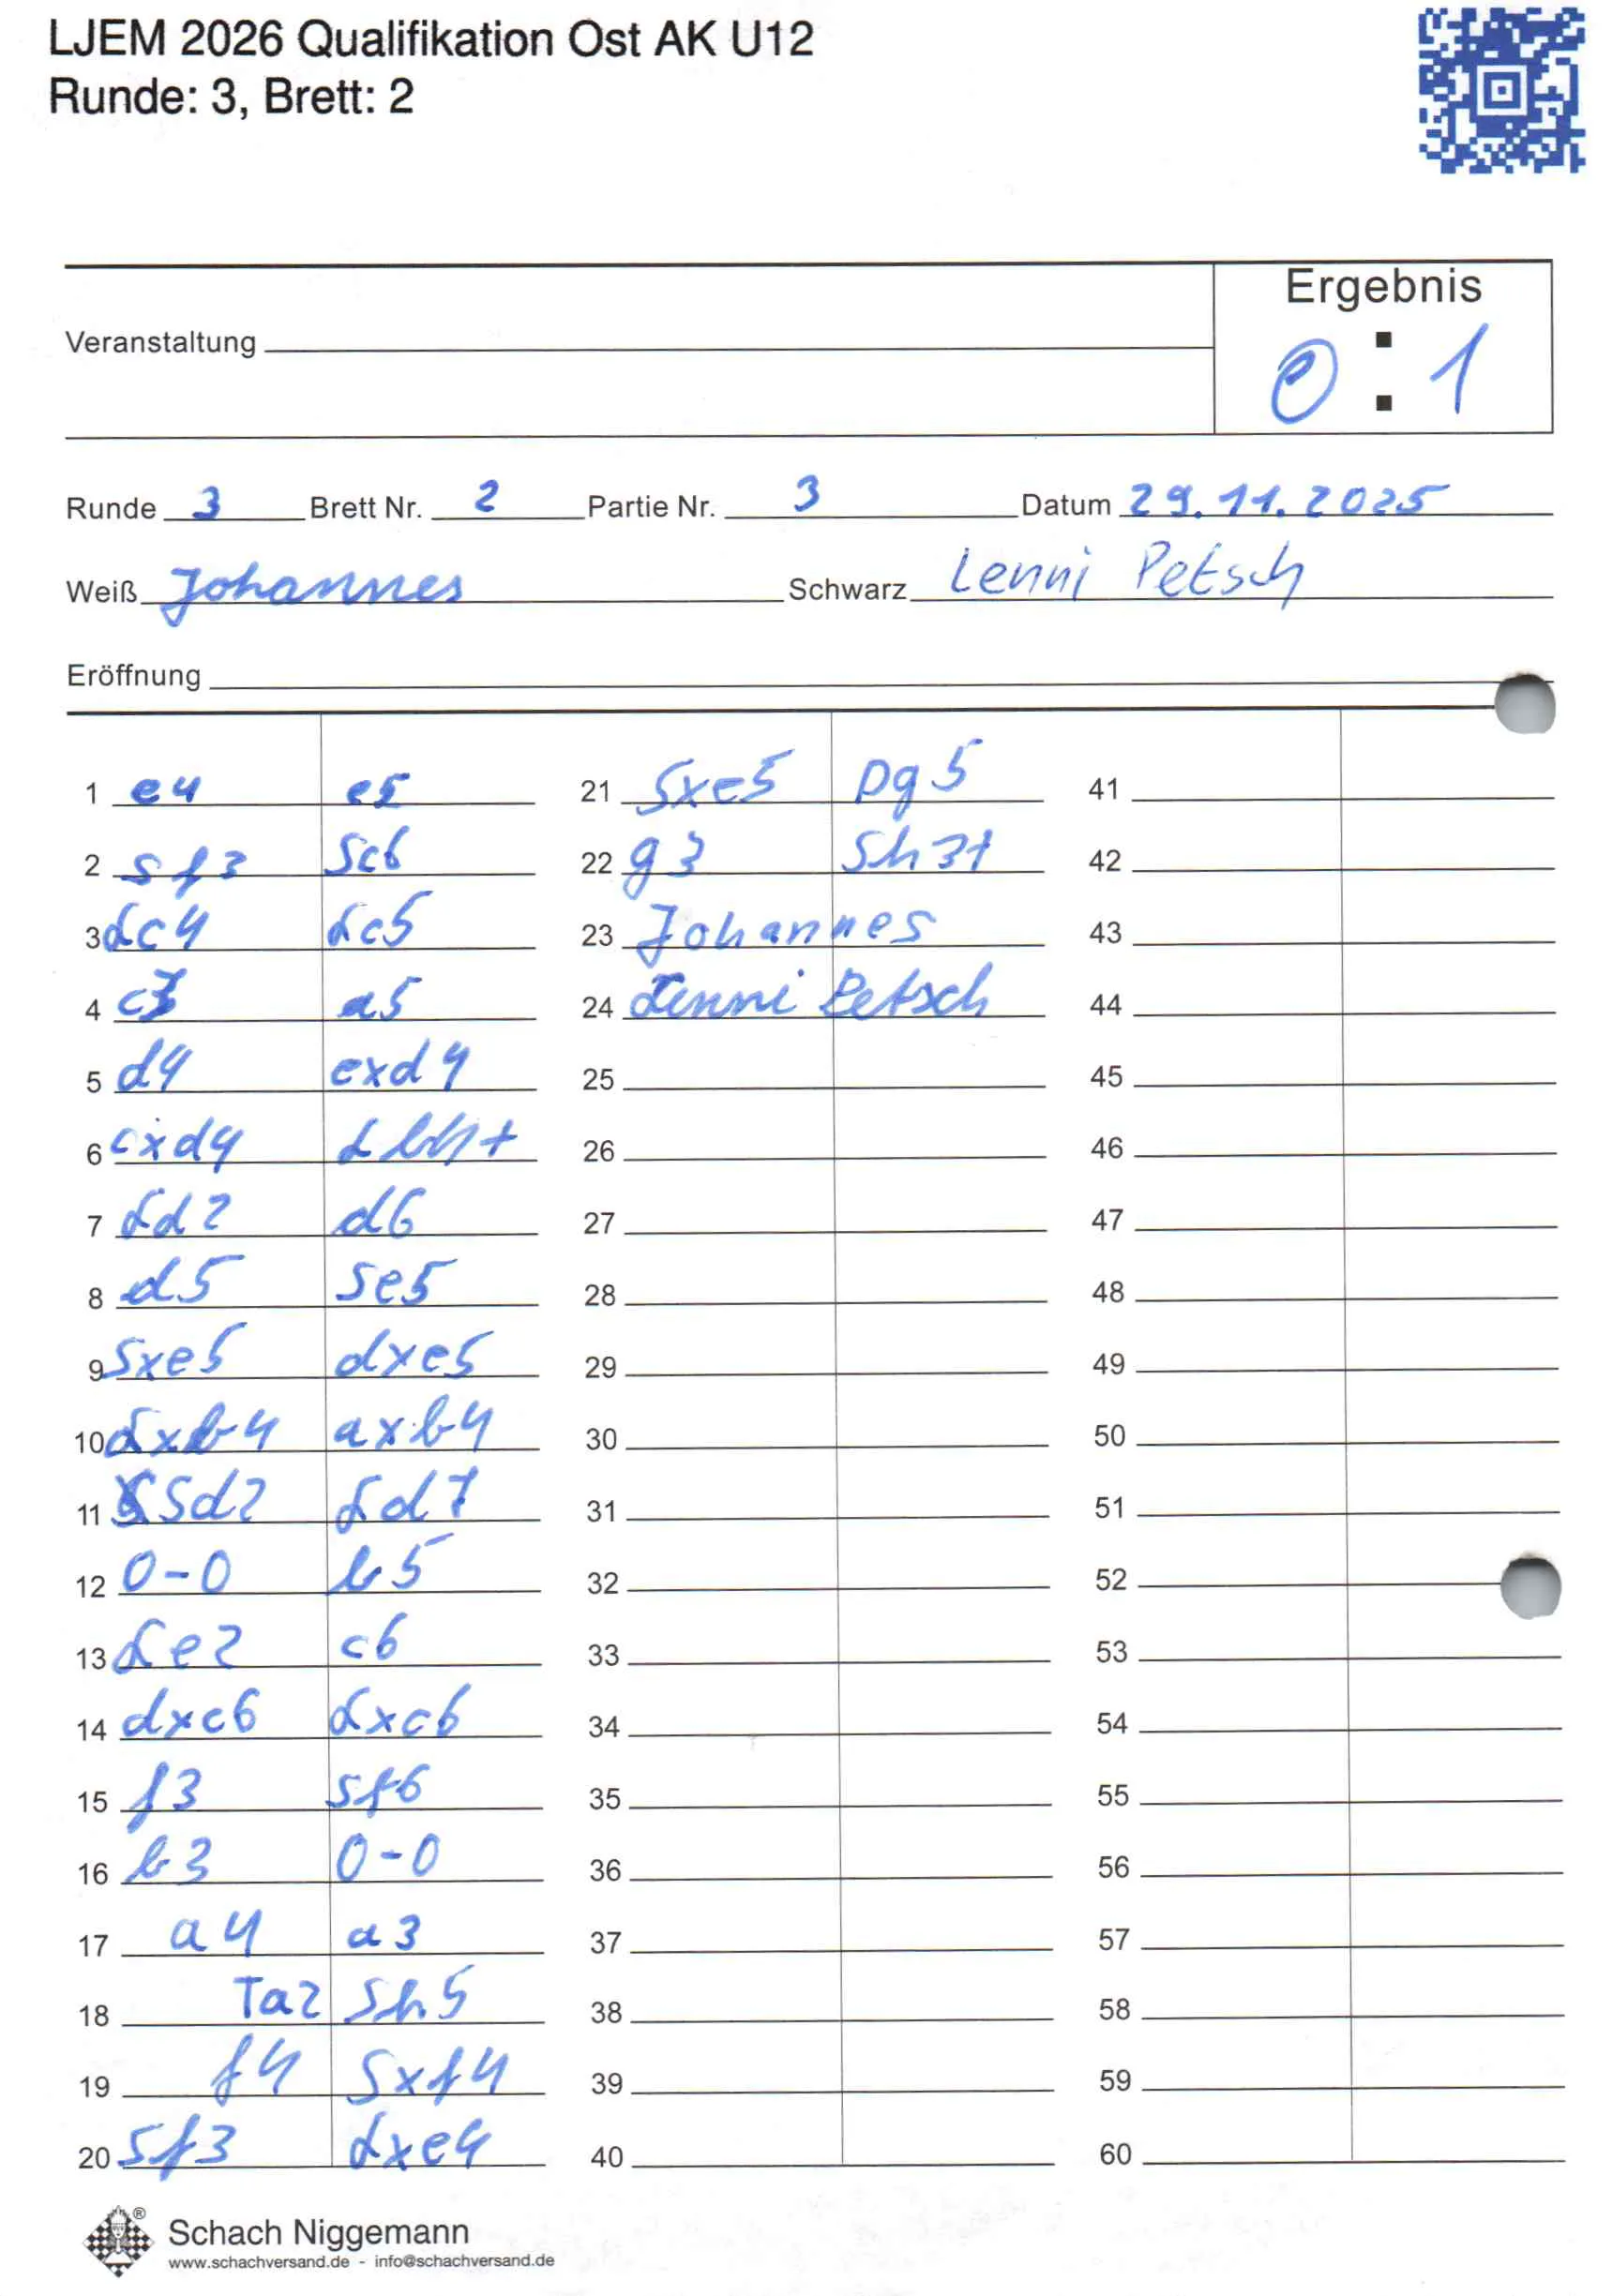 LJEM 2026 Qualifikation Ost AK U12
Runde: 3, Brett: 2
Ergebnis
Veranstaltung
0 : 1
Runde 3 Brett Nr. 2 Partie Nr. 3 Datum 29.11.2025
Weiß Johannes Schwarz Lenni Petsch
Eröffnung
1 e4 e5
2 Sf3 Sc6
3 Lc4 Lc5
4 c3 a5
5 d4 exd4
6 cxd4 Lb4+
7 Ld2 d6
8 d5 Se5
9 Sxe5 dxe5
10 Lxb4 axb4
11 Sd2 Ld7
12 0-0 b5
13 Le2 c6
14 dxc6 Lxc6
15 f3 Sf6
16 b3 0-0
17 a4 a3
18 Ta2 Sh5
19 f4 Sxf4
20 Sf3 Lxe4
21 Sxe5 Dg5
22 g3 Sh3+
23 Johannes
24 Lenni Petsch
25
26
27
28
29
30
31
32
33
34
35
36
37
38
39
40
41
42
43
44
45
46
47
48
49
50
51
52
53
54
55
56
57
58
59
60
® Schach Niggemann
www.schachversand.de - info@schachversand.de